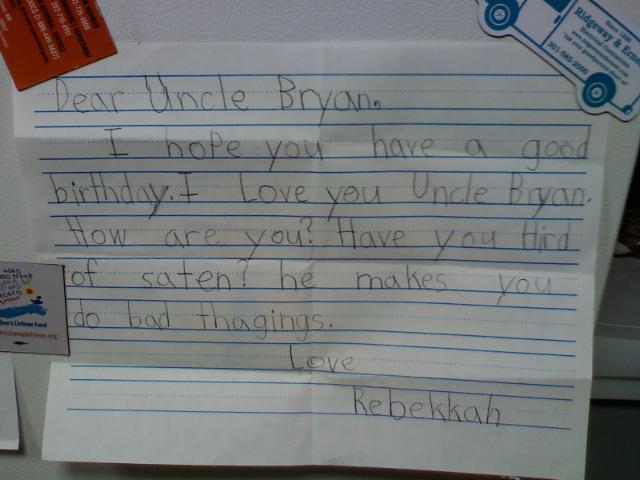 Ridgeway & Erne
301-585-2000
Dear Uncle Bryan.
I hope you have a good
birthday. I Love you Uncle Bryan.
How are you? Have you Hird
of saten? he makes you
do bad thagings.
Love
Rebekkah
ren's Defense Fund
childrensdefense.org